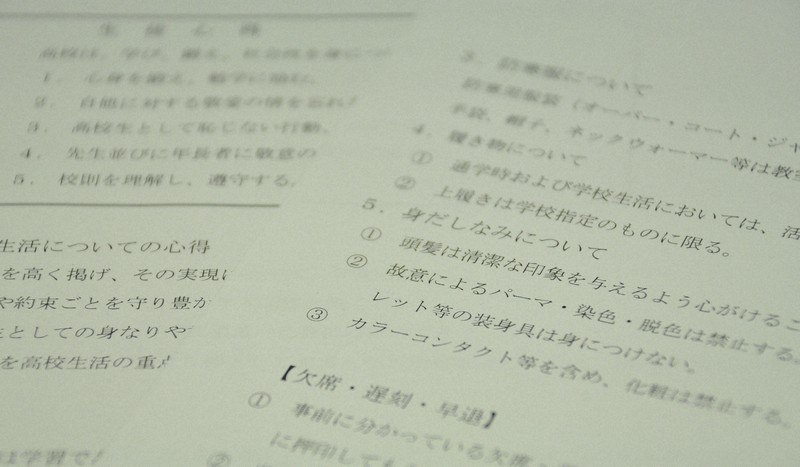 生 徒 心 得
高校は、学び、鍛え、社会性を身につ
1． 心身を鍛え、勉学に励む。
2． 自他に対する敬愛の情を忘れ
3． 高校生として恥じない行動。
4． 先生並びに年長者に敬意の
5． 校則を理解し、遵守する。
生活についての心得
を高く掲げ、その実現に
や約束ごとを守り豊か
生としての身なりや
を高校生活の重
は学習で
3．防寒服について
防寒用服装（オーバー・コート・ジャ
手袋、帽子、ネックウォーマー等は教室
4．履き物について
① 通学時および学校生活においては、活
② 上履きは学校指定のものに限る。
5．身だしなみについて
① 頭髪は清潔な印象を与えるよう心がけるこ
② 故意によるパーマ・染色・脱色は禁止する。
レット等の装身具は身につけない。
③ カラーコンタクト等を含め、化粧は禁止する。
【欠席・遅刻・早退】
① 事前に分かっている欠席・
に押印しても
②